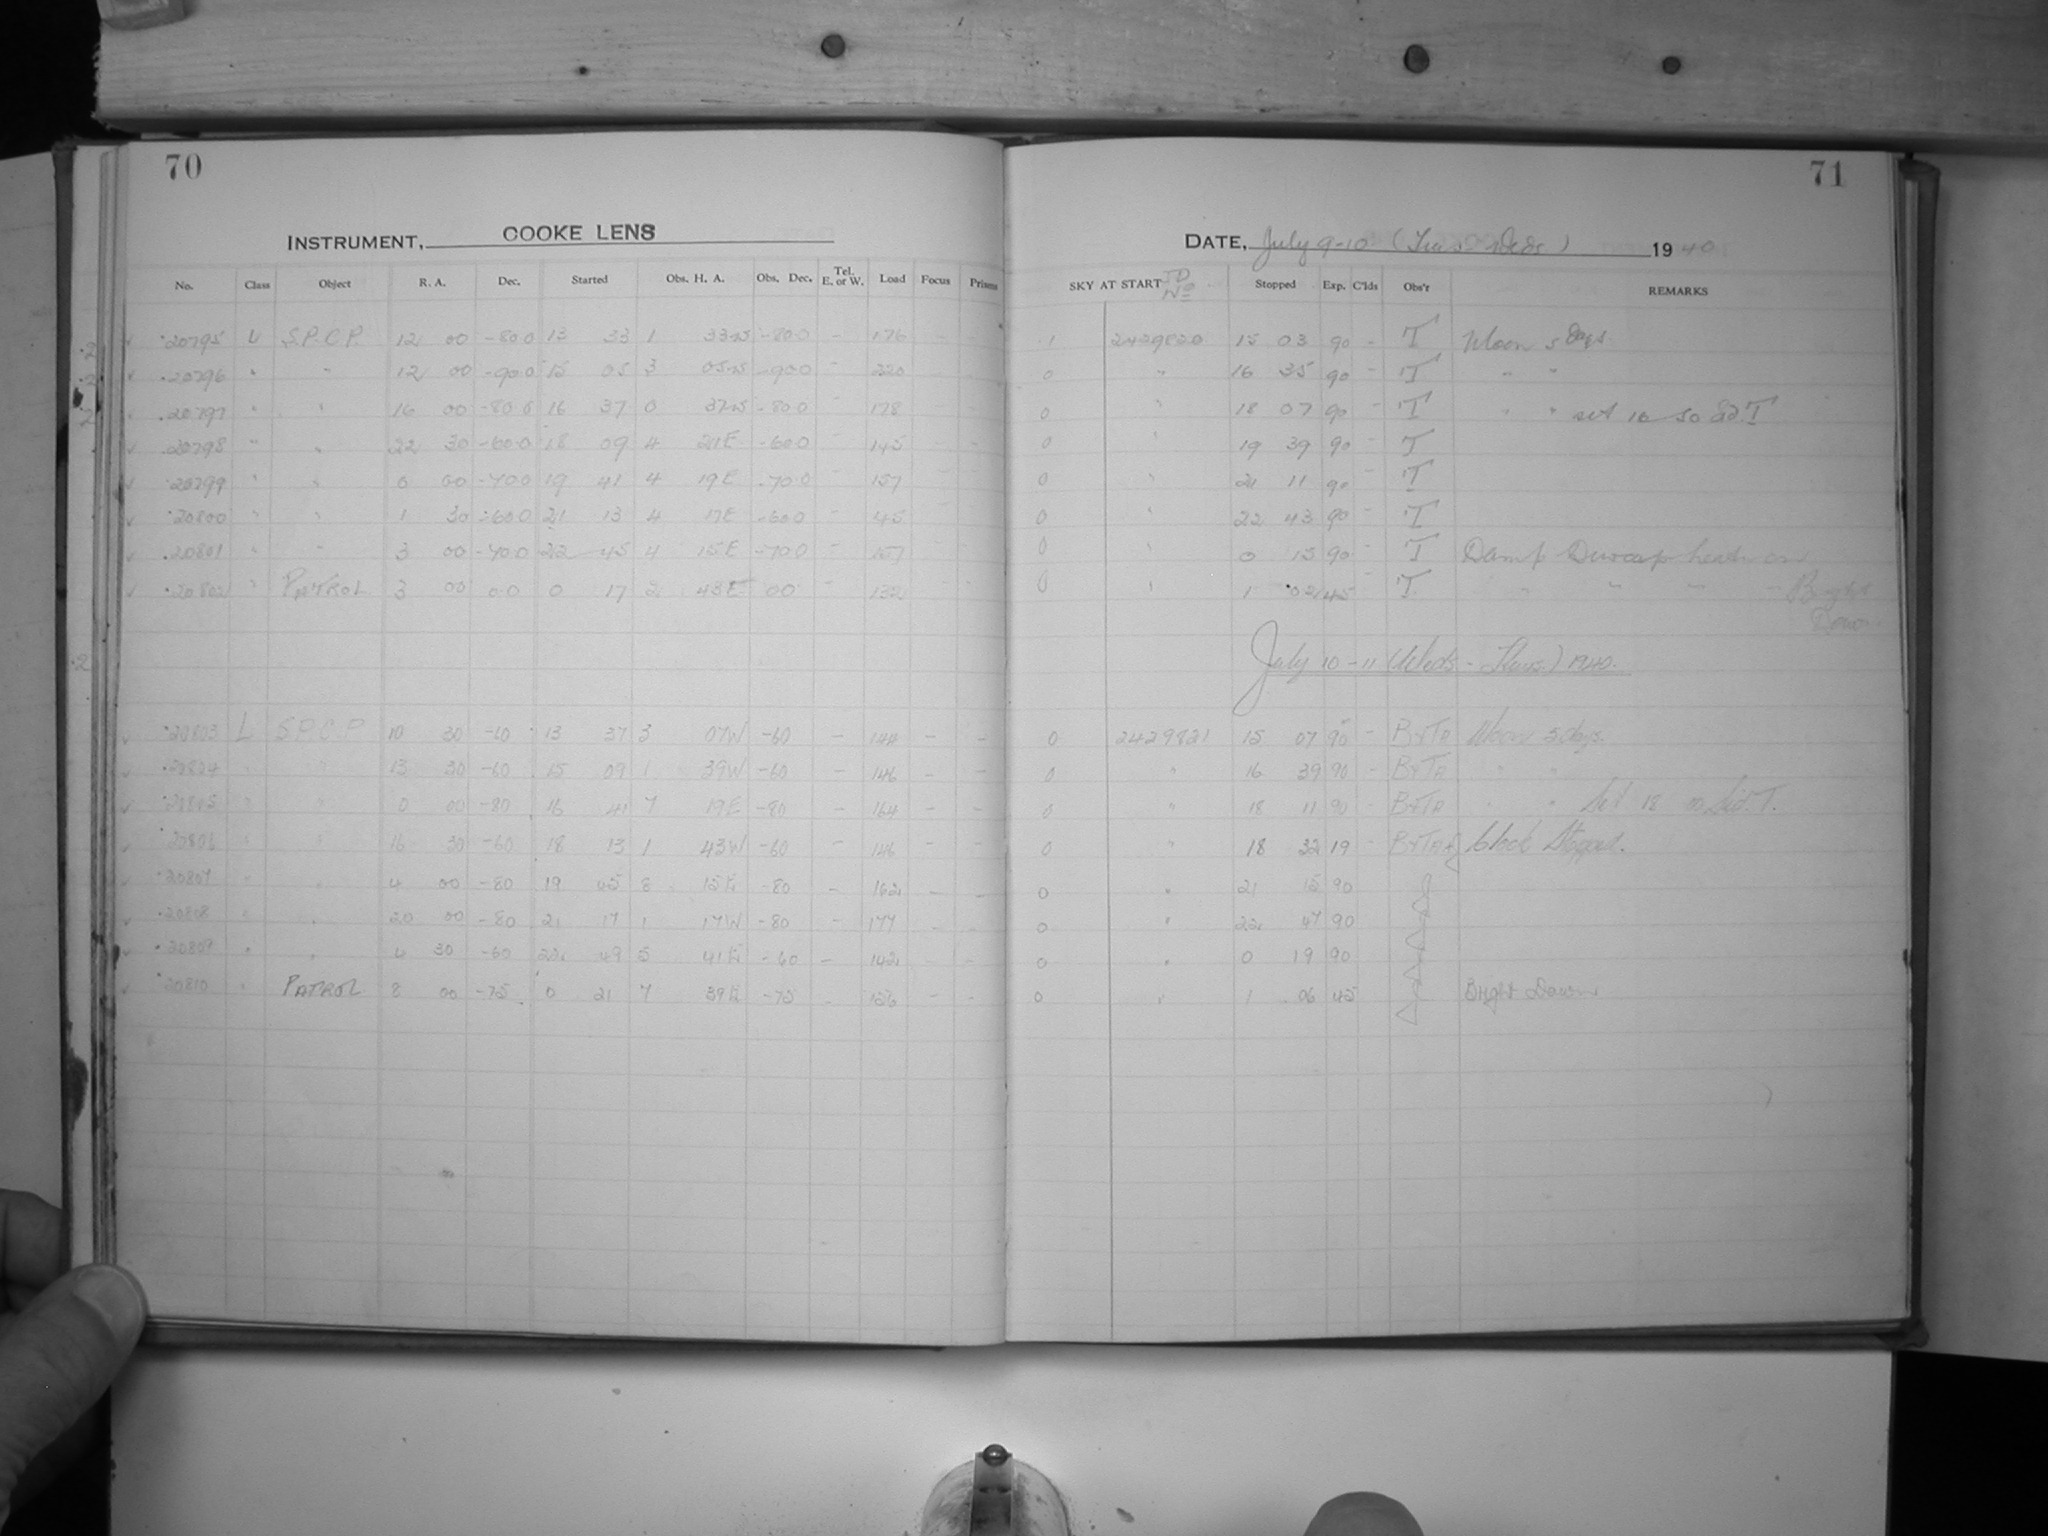 70
71
INSTRUMENT, COOKE LENS
DATE, July 9-10 (Tues-Weds) 1940
No. Class Object R. A. Dec. Started Obs. H. A. Obs. Dec. Tel. E. or W. Load Focus Prisms SKY AT START JD No Stopped Exp. C'lds Obs'r REMARKS
20795 L S.P.C.P. 12 00 -80 0 13 33 1 33W -80 0 - 176 - - 1 2429820 15 03 90 - T Moon 5 days
20796 " " 12 00 -90 0 15 05 3 05W -90 0 - 220 - - 0 " 16 35 90 - T " "
20797 " " 16 00 -80 0 16 37 0 37W -80 0 - 178 - - 0 " 18 07 90 - T " " set 18 50 Sd.T
20798 " " 22 30 -60 0 18 09 4 21E -60 0 - 145 - - 0 " 19 39 90 - T
20799 " " 0 00 -70 0 19 41 4 19E -70 0 - 157 - - 0 " 21 11 90 - T
20800 " " 1 30 -60 0 21 13 4 17E -60 0 - 145 - - 0 " 22 43 90 - T
20801 " " 3 00 -70 0 22 45 4 15E -70 0 - 157 - - 0 " 0 15 90 - T Damp Dewcap heater on
20802 " PATROL 3 00 0 0 0 17 2 43E 00 - 132 - - 0 " 1 02 45 - T " " " - Bright
Dawn
July 10-11 (Weds - Thurs.) 1940.
20803 L S.P.C.P 10 30 -60 13 37 3 07W -60 - 144 - - 0 2429821 15 07 90 - B+TA Moon 5 days.
20804 " " 13 30 -60 15 09 1 39W -60 - 146 - - 0 " 16 39 90 - B+TA " "
20805 " " 0 00 -80 16 41 7 19E -80 - 164 - - 0 " 18 11 90 - B+TA " " Set 18 m Sid. T.
20806 " " 16 30 -60 18 13 1 43W -60 - 146 - - 0 " 18 32 19 - B+TA Clock Stopped.
20807 " " 4 00 -80 19 45 8 15E -80 - 162 - - 0 " 21 15 90
20808 " " 20 00 -80 21 17 1 17W -80 - 177 - - 0 " 22 47 90
20809 " " 4 30 -60 22 49 5 41E -60 - 142 - - 0 " 0 19 90
20810 " PATROL 8 00 -75 0 21 7 39E -75 - 156 - - 0 " 1 06 45 Bright Dawn